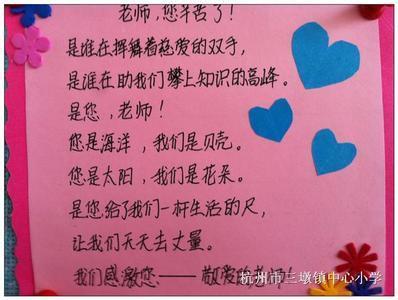 老师,您辛苦了!
是谁在挥舞着慈爱的双手,
是谁在助我们攀上知识的高峰。
是您,老师!
您是海洋,我们是贝壳。
您是太阳,我们是花朵。
是您给了我们一杆生活的尺,
让我们天天去丈量。
我们感激您——敬爱的老师!
杭州市三墩镇中心小学